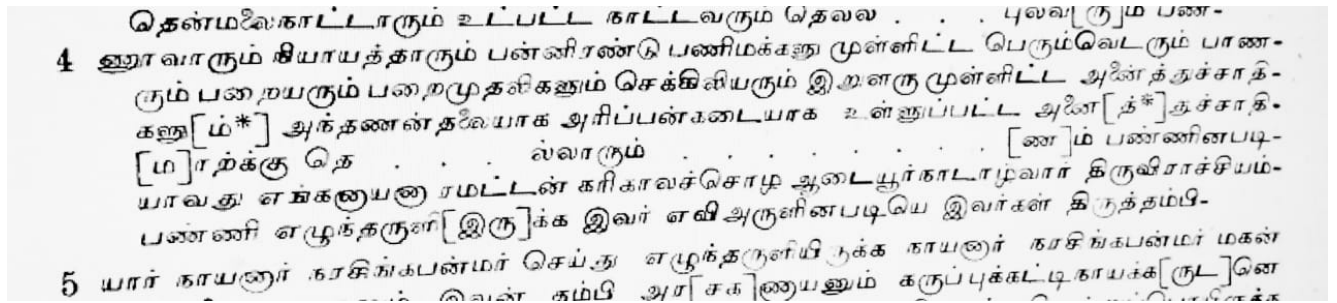 தென்மலைநாட்டாரும் உட்பட்ட நாட்டவரும் தெவல . . . புலவ[ரு]ம் பண-
4 ணுவாரும் நியாயத்தாரும் பன்னிரண்டு பணிமக்களு முள்ளிட்ட பெரும்வெடரும் பாண-
ரும் பறையரும் பறைமுதலிகளும் செக்கிலியரும் இறுளரு முள்ளிட்ட அனைத்துச்சாதி-
களு[ம்*] அந்தணன்தலையாக அரிப்பன்கடையாக உள்ளுப்பட்ட அனை[த்*]துச்சாதி-
[ம]ாற்க்கு தெ . . . ல்லாரும் . . . . . . . [ண]ம் பண்ணினபடி-
யாவது எங்கனாயனா ரமட்டன் கரிகாலச்சொழ ஆடையூர்நாடாழ்வார் திருவிராச்சியம்-
பண்ணி எழுந்தருளி[இரு]க்க இவர் எவிஅருளினபடியெ இவர்கள் திருத்தம்பி-
5 யார் நாயனார் நரசிங்கபன்மர் செய்து எழுந்தருளியிருக்க நாயனார் நரசிங்கபன்மர் மகன்
இவன் தம்பி அர[சக]ணாயனும் கருப்புக்கட்டிநாயக்க[ருட]னெ